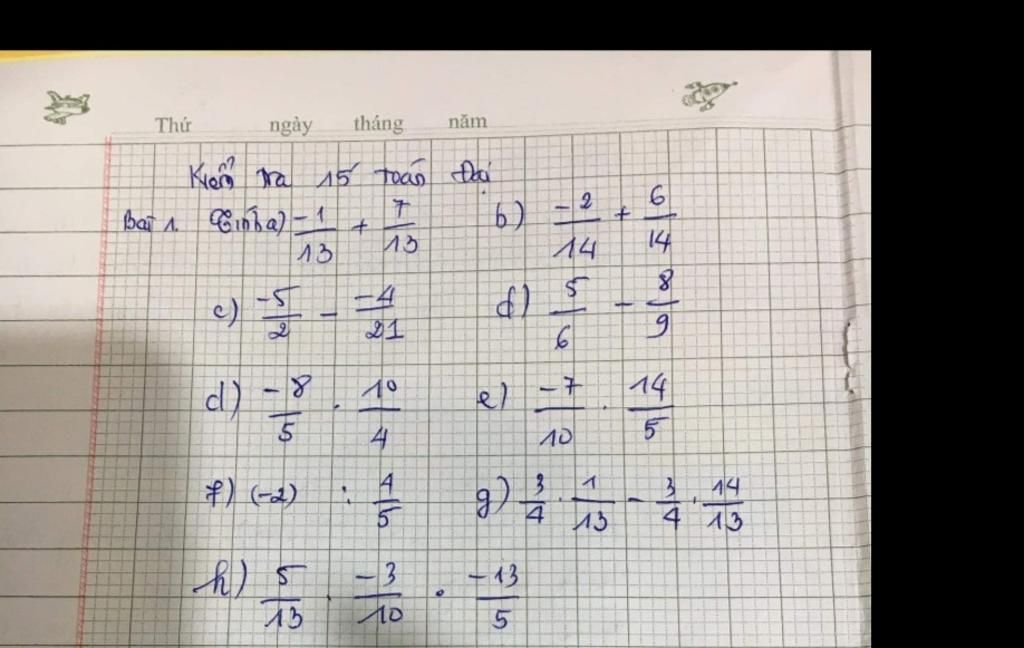 Thứ ngày tháng năm
Kiểm tra 15 toán Đại
Bài 1. Tính a) -1/13 + 7/13 b) -2/14 + 6/14
c) -5/2 - -4/21 d) 5/6 - 8/9
d) -8/5 . 10/4 e) -7/10 . 14/5
f) (-2) : 4/5 g) 3/4 . 1/13 - 3/4 . 14/13
h) 5/13 . -3/10 . -13/5